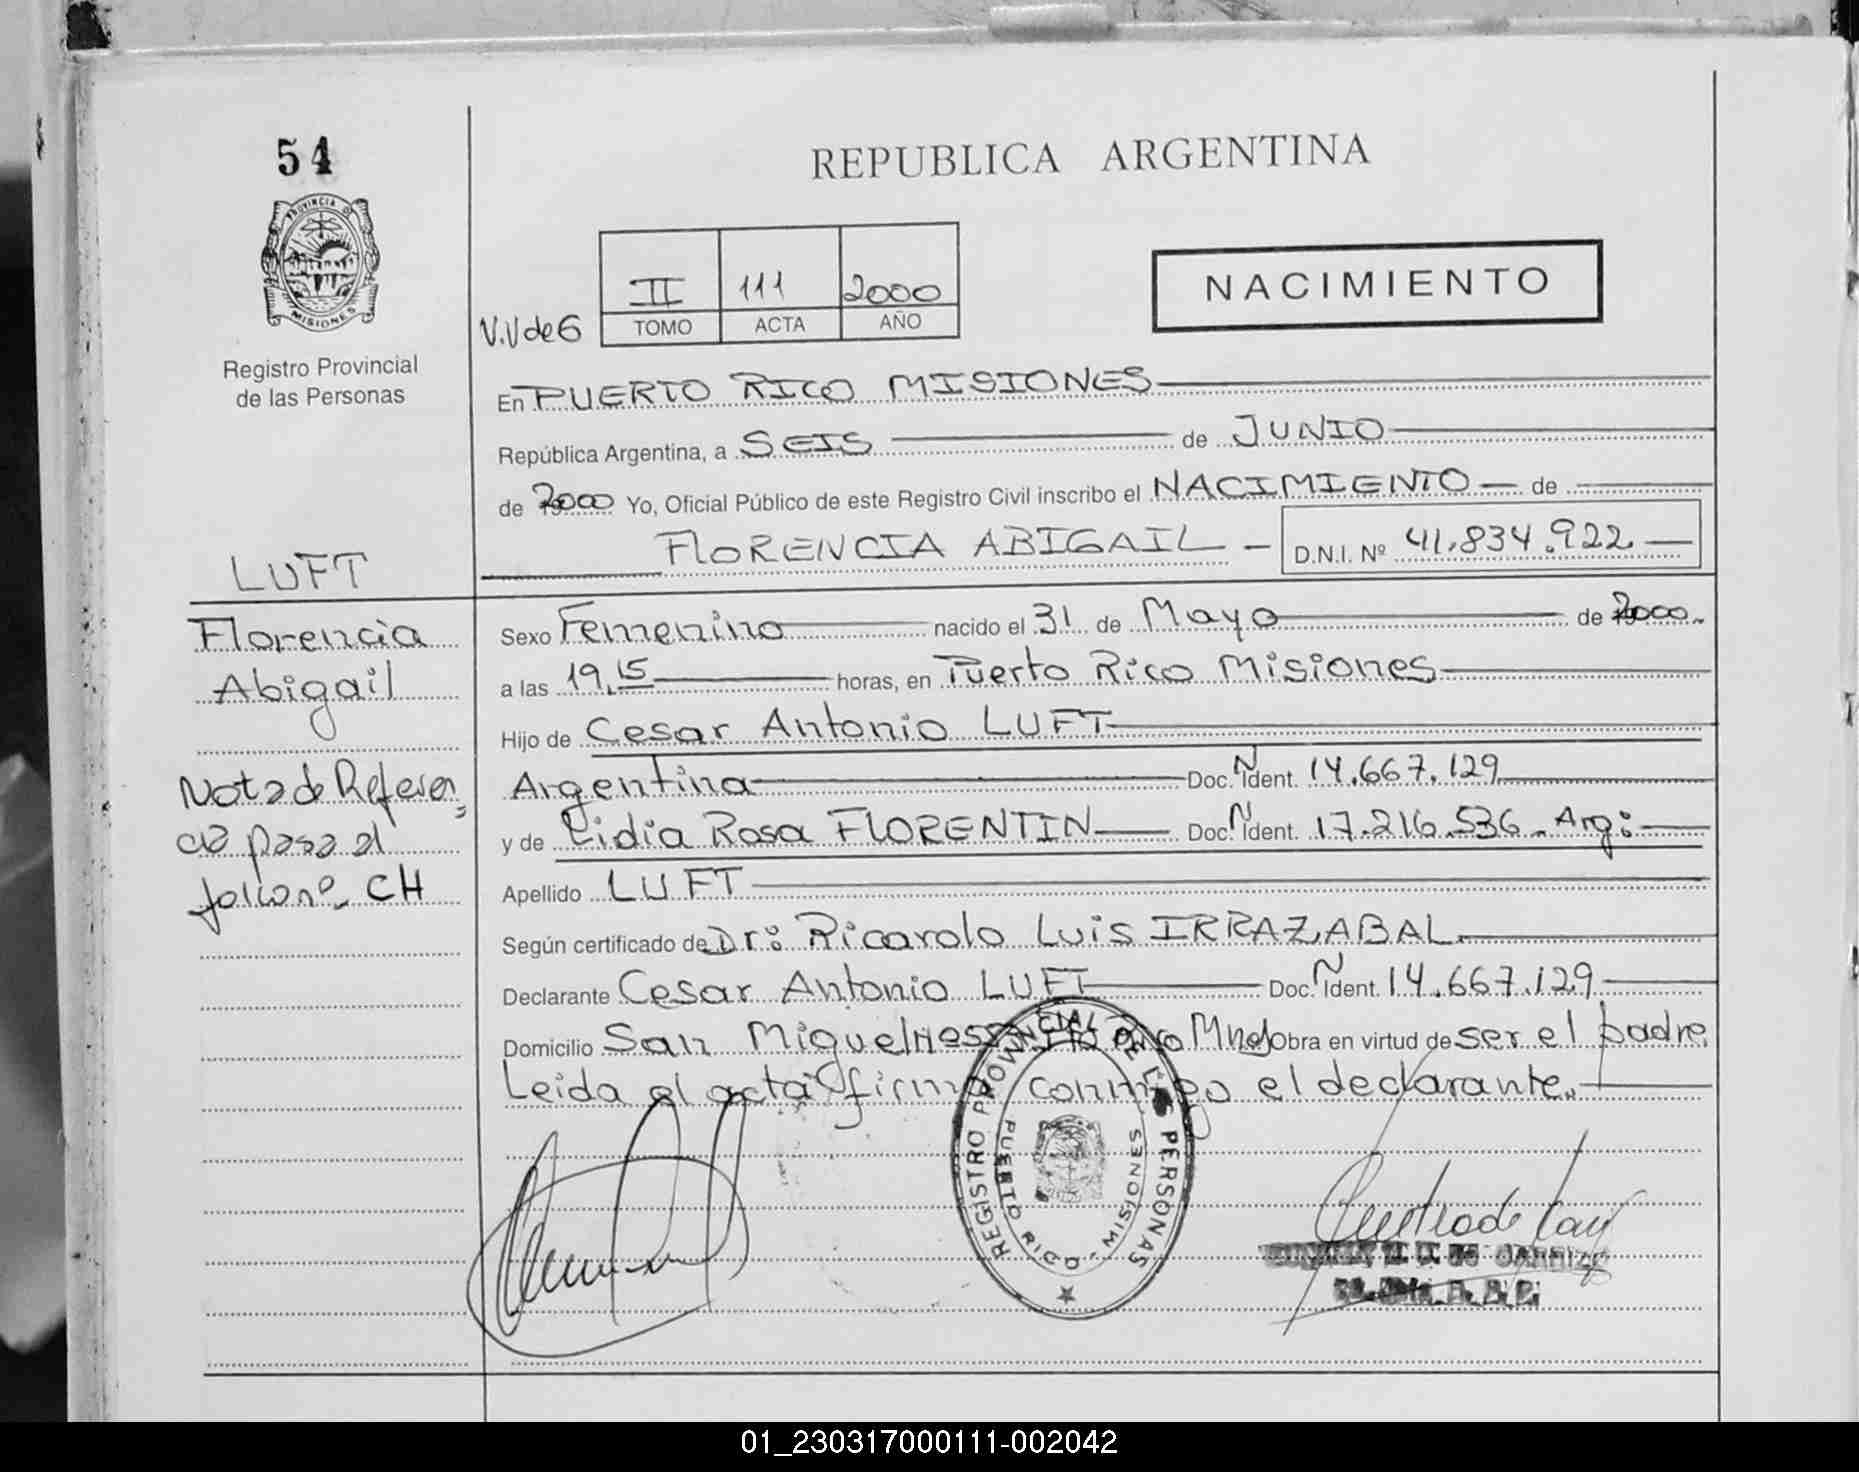 54
PROVINCIA DE
MISIONES
Registro Provincial
de las Personas
REPUBLICA ARGENTINA
II 111 2000
V.V de 6 TOMO ACTA AÑO
NACIMIENTO
En PUERTO RICO MISIONES
República Argentina, a SEIS de JUNIO
de 2000 Yo, Oficial Público de este Registro Civil inscribo el NACIMIENTO de
FLORENCIA ABIGAIL D.N.I. Nº 41.834.922
LUFT
Florencia
Abigail
Nota de Referen
cia pasa al
folio nº CH
Sexo Femenino nacido el 31 de Mayo de 2000
a las 19,15 horas, en Puerto Rico Misiones
Hijo de Cesar Antonio LUFT
Argentina Doc. N Ident. 14.667.129
y de Lidia Rosa FLORENTIN Doc. N Ident. 17.216.536 Arg:
Apellido LUFT
Según certificado de Dr: Ricardo Luis IRRAZABAL
Declarante Cesar Antonio LUFT Doc. N Ident. 14.667.129
Domicilio San Miguel Mnes Obra en virtud de ser el padre
Leida el acta firma conmigo el declarante.
REGISTRO PROVINCIAL DE LAS PERSONAS
PUERTO RICO - MISIONES
01_230317000111-002042